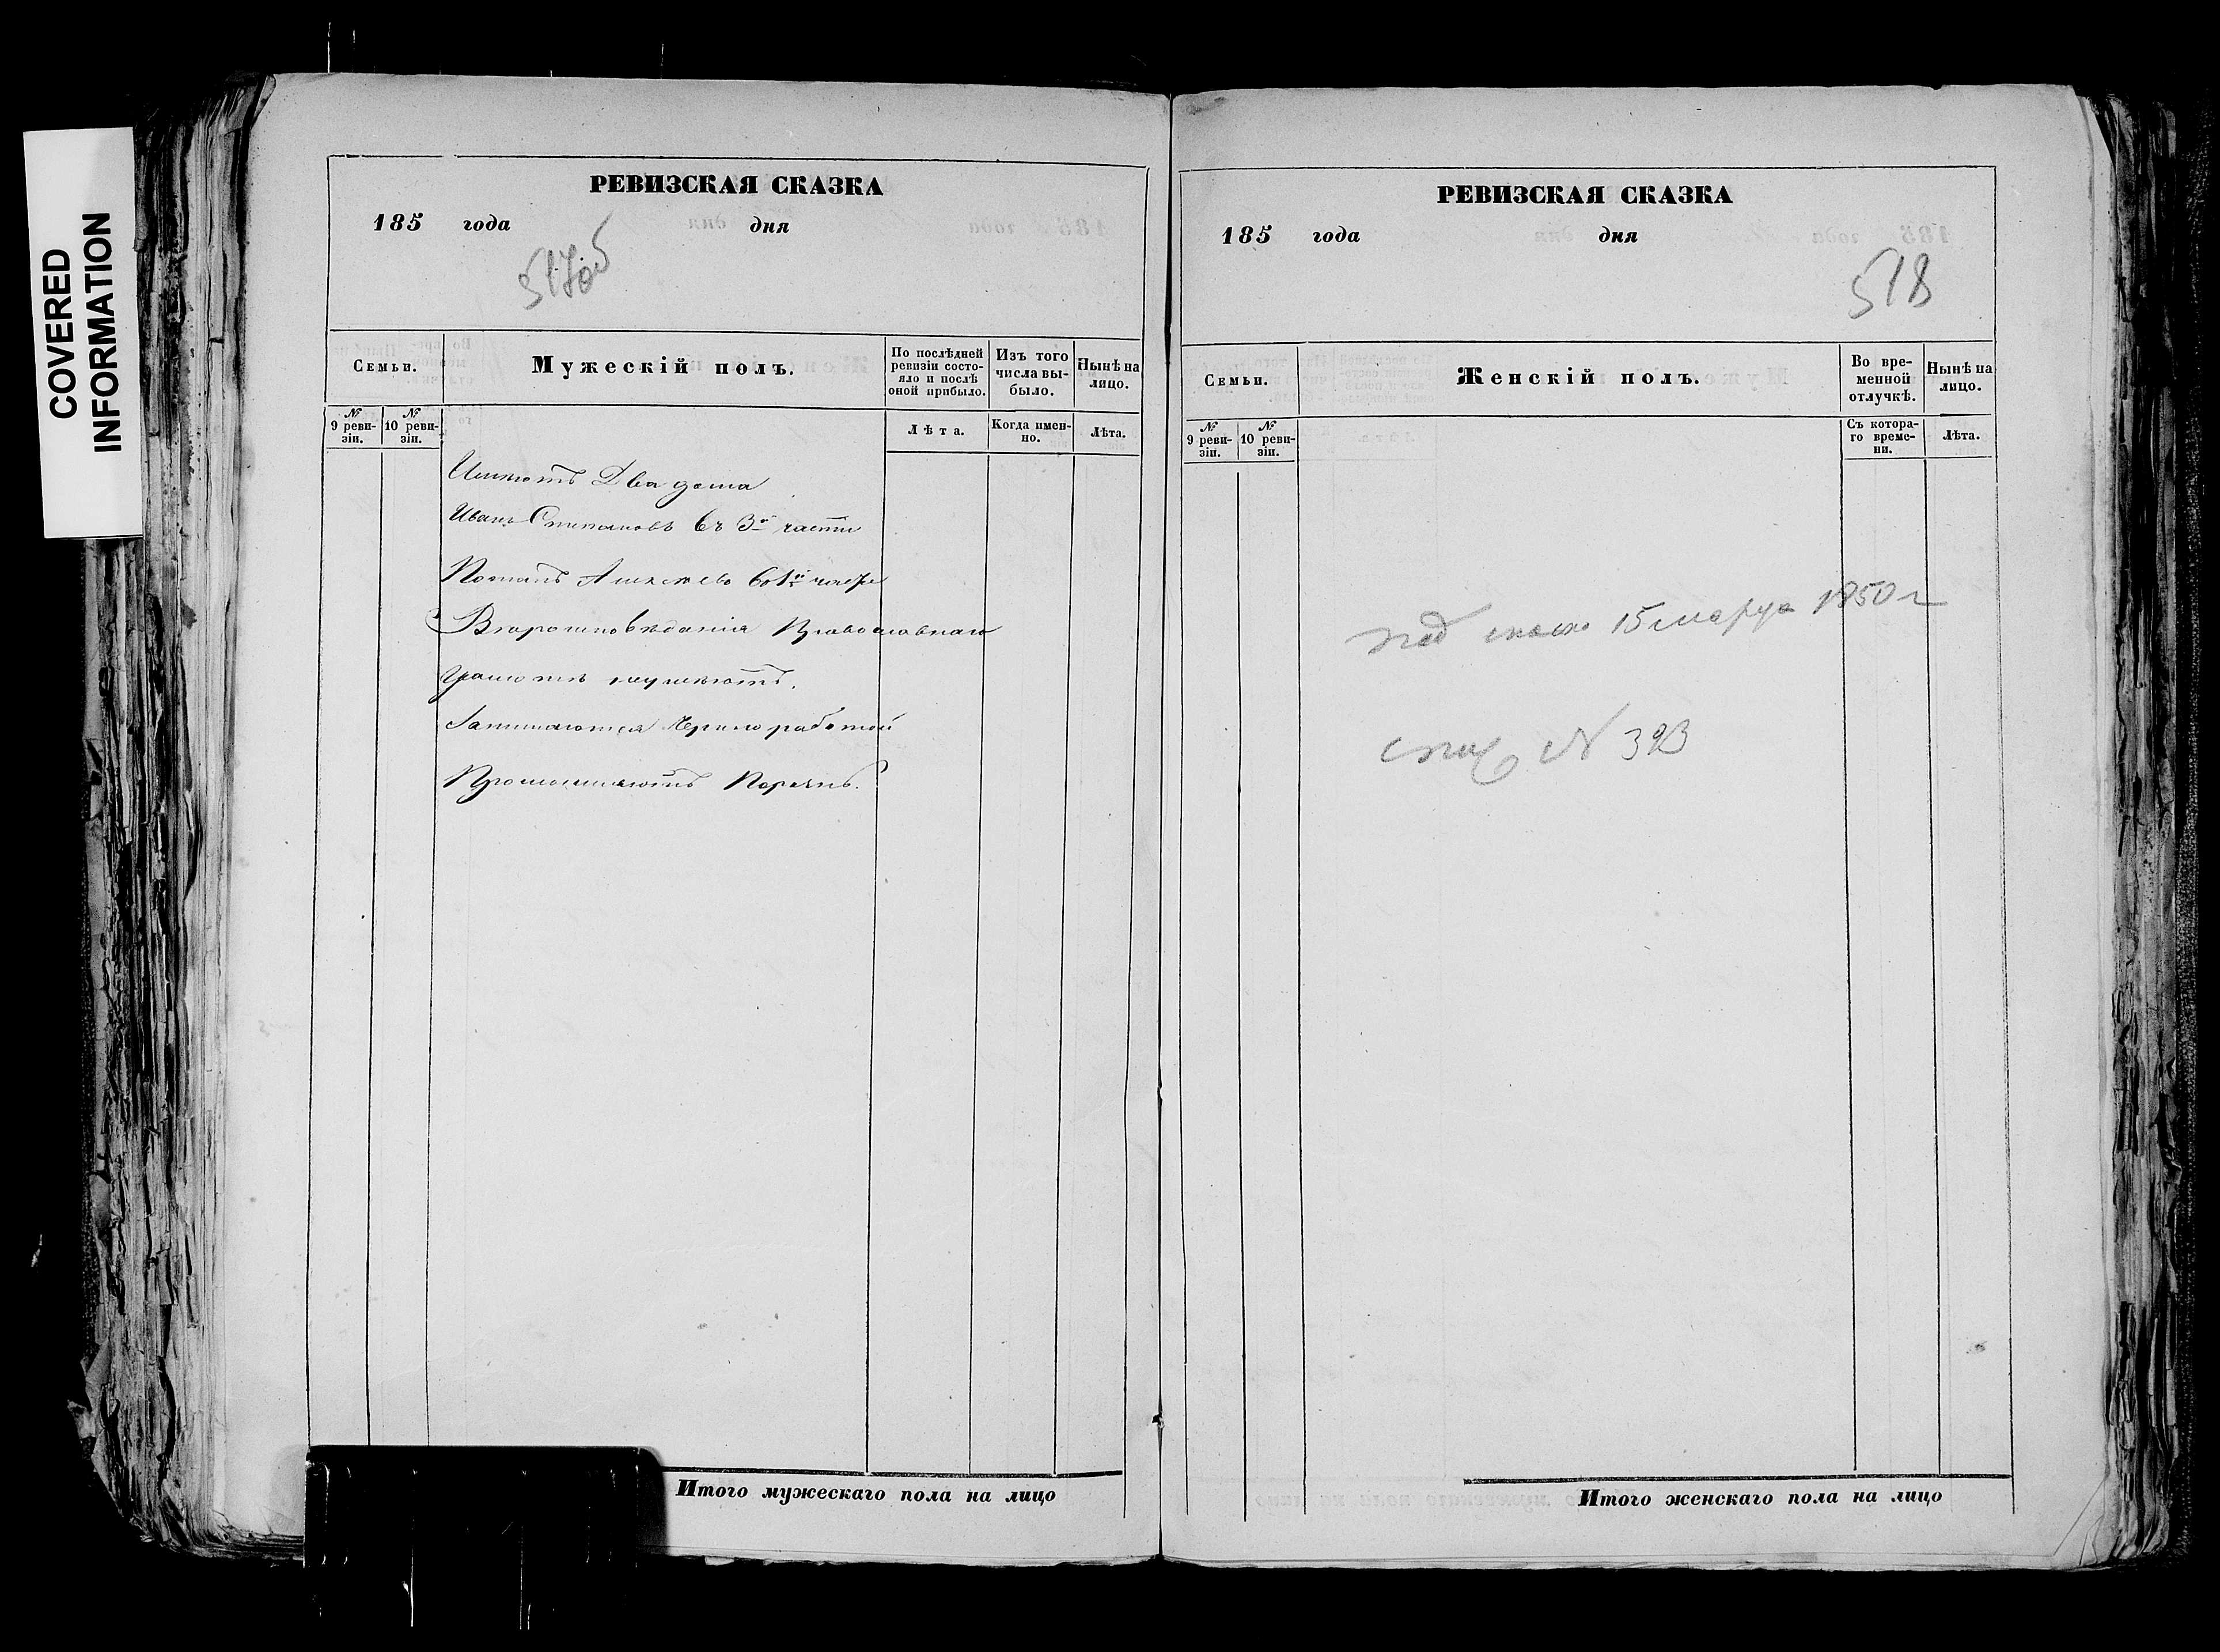 COVERED
INFORMATION
РЕВИЗСКАЯ СКАЗКА
185 года дня
517об
Семьи.
Мужескій полъ.
По послѣдней
ревизіи состо-
яло и послѣ
оной прибыло.
Изъ того
числа вы-
было.
Нынѣ на
лицо.
№
9 реви-
зіи.
№
10 реви-
зіи.
Лѣта.
Когда имен-
но.
Лѣта.
Имѣютъ Два дома
Иванъ Степановъ въ 3й части
Потапъ Алексѣевъ во 1й части
Вѣроисповѣданія Православнаго
Грамотѣ неумѣютъ.
Занимаются Чернораборотой
Итого мужескаго пола на лицо
РЕВИЗСКАЯ СКАЗКА
185 года дня
518
Семьи.
Женскій полъ.
Во вре-
менной
отлучкѣ.
Нынѣ на
лицо.
№
9 реви-
зіи.
№
10 реви-
зіи.
Съ котора-
го време-
ни.
Лѣта.
15 марта 1850 г
№ 393
Итого женскаго пола на лицо